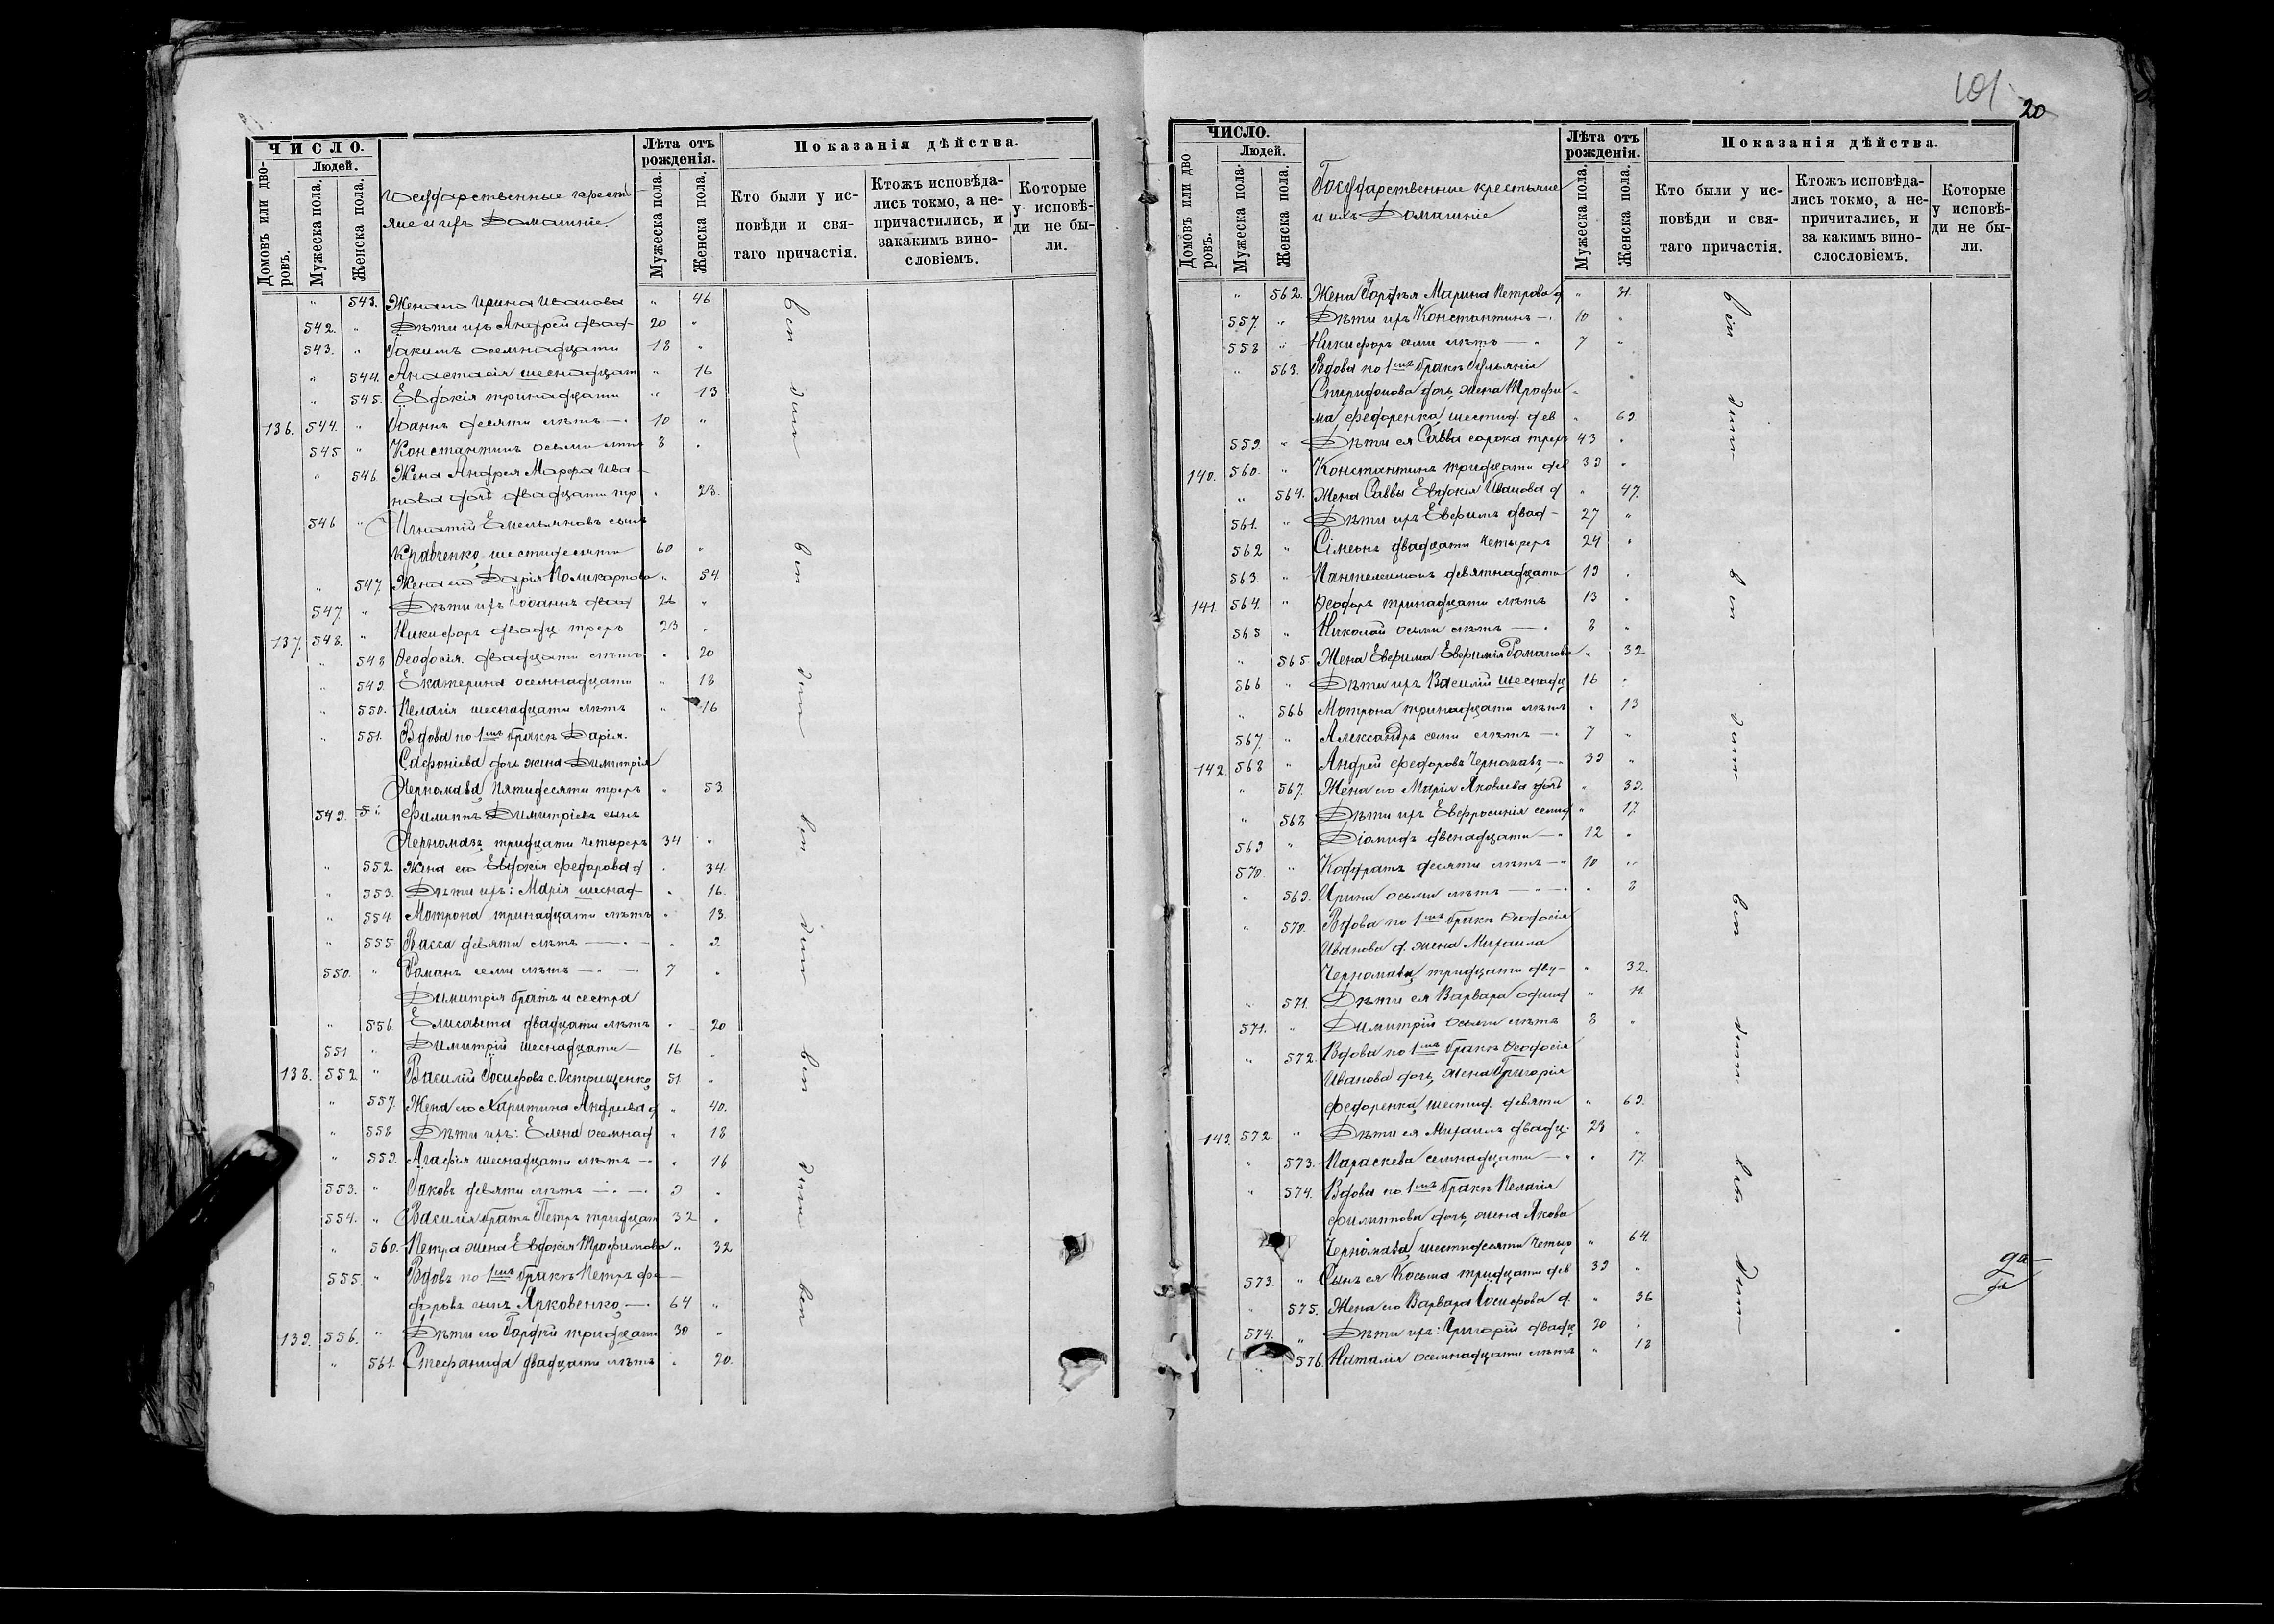 ЧИСЛО.
Людей.
Домовъ или дворовъ.
Мужеска пола.
Женска пола.
Государственные кресть-
яне и ихъ Домашніе.
Лѣта отъ рожденія.
Мужеска пола.
Женска пола.
Показанія дѣйства.
Кто были у исповѣди и святаго причастія.
Ктожъ исповѣдались токмо, а непричастились, и закакимъ винословіемъ.
Которые у исповѣди не были.
" 543. Жена его Ирина Иванова " 46
542. " Дѣти ихъ Андрей двад- 20 "
543. " Іакимъ осемнадцати 18 "
" 544. Анастасія шеснадцат " 16
" 545. Евдокія тринадцати " 13
136. 544. " Іоаннъ десяти лѣтъ —. 10 "
545 " Константинъ осьми лѣтъ 8 "
" 546 Жена Андрея Марфа Ива-
нова дочь двадцати тр " 23.
546 " Игнатій Емельяновъ сынъ
Кравченко шестидесяти 60 "
" 547. Жена его Дарія Поликарпова " 54
547. " Дѣти ихъ Іоаннъ двад 26 "
137. 548. " Никифоръ двадц. трехъ 23 "
" 548 Ѳеодосія двадцати лѣтъ " 20
" 549. Екатерина осемнадцати " 18
" 550. Пелагія шеснадцати лѣтъ " 16
" 551. Вдова по 1мъ бракѣ Дарія
Сафоніева дочь жена Димитрія
Черномава, пятидесяти трехъ " 53
549. " Филиппъ Димитріевъ сынъ
Черномазъ тридцати четырехъ 34 "
" 552. Жена его Евдокія Федорова д " 34.
" 553. Дѣти ихъ: Марія шеснад- " 16.
" 554 Мотрона тринадцати лѣтъ " 13.
" 555 Васса девяти лѣтъ — " 9.
550. " Романъ семи лѣтъ —. —. 7 "
Димитрія братъ и сестра
" 556. Елисавета двадцати лѣтъ " 20
551 " Димитрій шеснадцати — 16 "
138. 552. " Василій Іосифовъ с. Острищенко 51 "
" 557. Жена его Харитина Андреева д " 40.
" 558 Дѣти ихъ: Елена осемнад " 18
" 559. Агафія шеснадцати лѣтъ — " 16
553. " Іаковъ девяти лѣтъ —. —. 9 "
554. " Василія братъ Петръ тридцат 32 "
" 560. Петра жена Евдокія Трофимова " 32
555. " Вдовъ по 1мъ бракѣ Петръ Фе-
доровъ сынъ Ярковенко —. 64 "
139. 556. " Дѣти его Гордѣй тридцати 30 "
" 561. Стефанида двадцати лѣтъ " 20.
101
20
ЧИСЛО.
Людей.
Домовъ или дворовъ.
Мужеска пола.
Женска пола.
Государственные крестьяне
и ихъ Домашніе
Лѣта отъ рожденія.
Мужеска пола.
Женска пола.
Показанія дѣйства.
Кто были у исповѣди и святаго причастія.
Ктожъ исповѣдались токмо, а непричитались, и за какимъ винослословіемъ.
Которые у исповѣди не были.
" 562. Жена Гордѣя Марина Петрова д " 31.
557. " Дѣти ихъ Константинъ —. 10 "
558 " Никифоръ семи лѣтъ — " 7 "
" 563. Вдова по 1мъ бракѣ Іульянія
Спиридонова дочь, жена Трофи-
ма Федоренка шестид. дев " 69
559. " Дѣти ея Савва сорока трехъ 43 "
140. 560. " Константинъ тридцати дев 39 "
" 564. Жена Саввы Евдокія Иванова д " 47.
561. " Дѣти ихъ Евфимъ двад- 27 "
562 " Сімеонъ двадцати четырехъ 24 "
563. " Пантелеимонъ девятнадцати 19 "
141. 564. " Ѳеодоръ тринадцати лѣтъ 13 "
565 " Николай осьми лѣтъ —. 8 "
" 565. Жена Евфима Евфимія Романова " 32
566 " Дѣти ихъ Василій шеснадц 16 "
" 566 Мотрона тринадцати лѣтъ " 13
567. " Александръ семи лѣтъ —. 7 "
142. 568 " Андрей Федоровъ Черномавъ —. 39 "
" 567. Жена его Марія Яковлева дочь " 39.
" 568 Дѣти ихъ Евфросинія семнд " 17.
569 " Діомидъ двенадцати — " 12 "
570. " Кодратъ десяти лѣтъ — " 10 "
" 569. Ирина осьми лѣтъ — " — " 8
" 570. Вдова по 1мъ бракѣ Ѳеодосія
Иванова д. жена Михаила
Черномава, тридцати дву- " 32.
" 571. Дѣти ея Варвара одинд " 11.
571. " Димитрій осьми лѣтъ 8 "
" 572. Вдова по 1мъ бракѣ Ѳеодосія
Иванова дочь, жена Григорія
Федоренка, шестид. девяти " 69.
143. 572. " Дѣти ея Михаилъ двадц. 28 "
" 573. Параскева семнадцати — " 17.
" 574. Вдова по 1мъ бракѣ Пелагія
Филиппова дочь, жена Якова
Черномава, шестидесяти четыр " 64.
573. " Сынъ ея Косьма тридцати дев 39 "
" 575. Жена его Варвара Іосифова д. " 36
574. " Дѣти ихъ: Григорій двадц 20 "
" 576. Наталія осемнадцати лѣтъ " 18